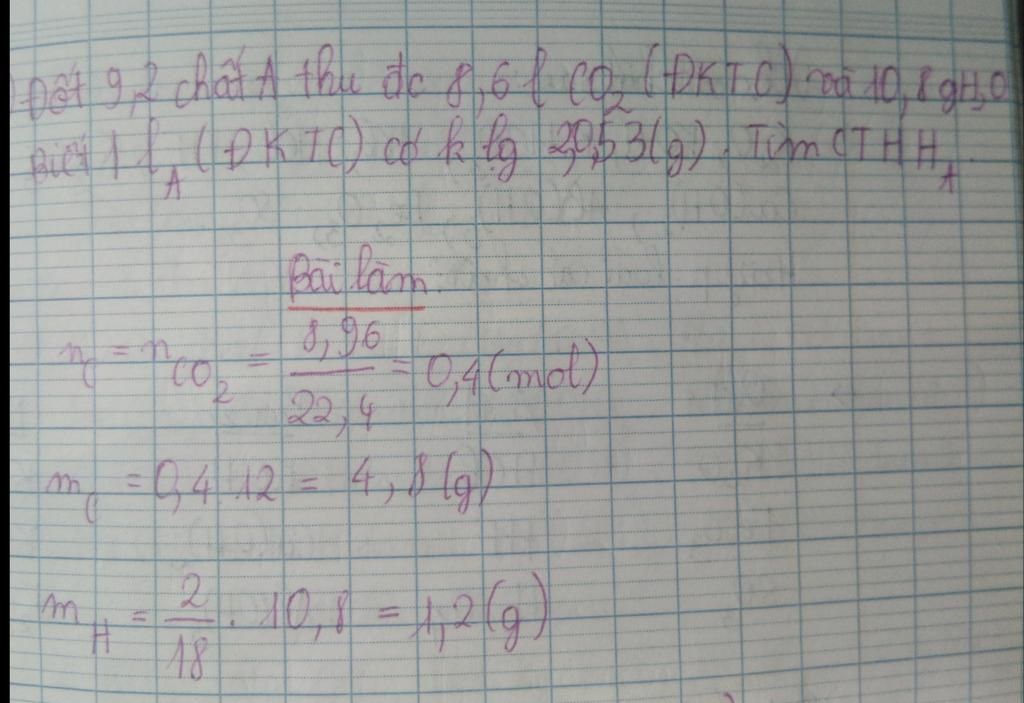 Đốt 9,2 chất A thu đc 8,6 l CO₂ (ĐKTC) và 10,8gH₂O
Biết 1 l A (ĐKTC) có k lg 2,053(g). Tìm CTHH A
Bài làm
n_C = n_CO₂ = 8,96/22,4 = 0,4(mol)
m_C = 0,4 12 = 4,8(g)
m_H = 2/18 . 10,8 = 1,2(g)